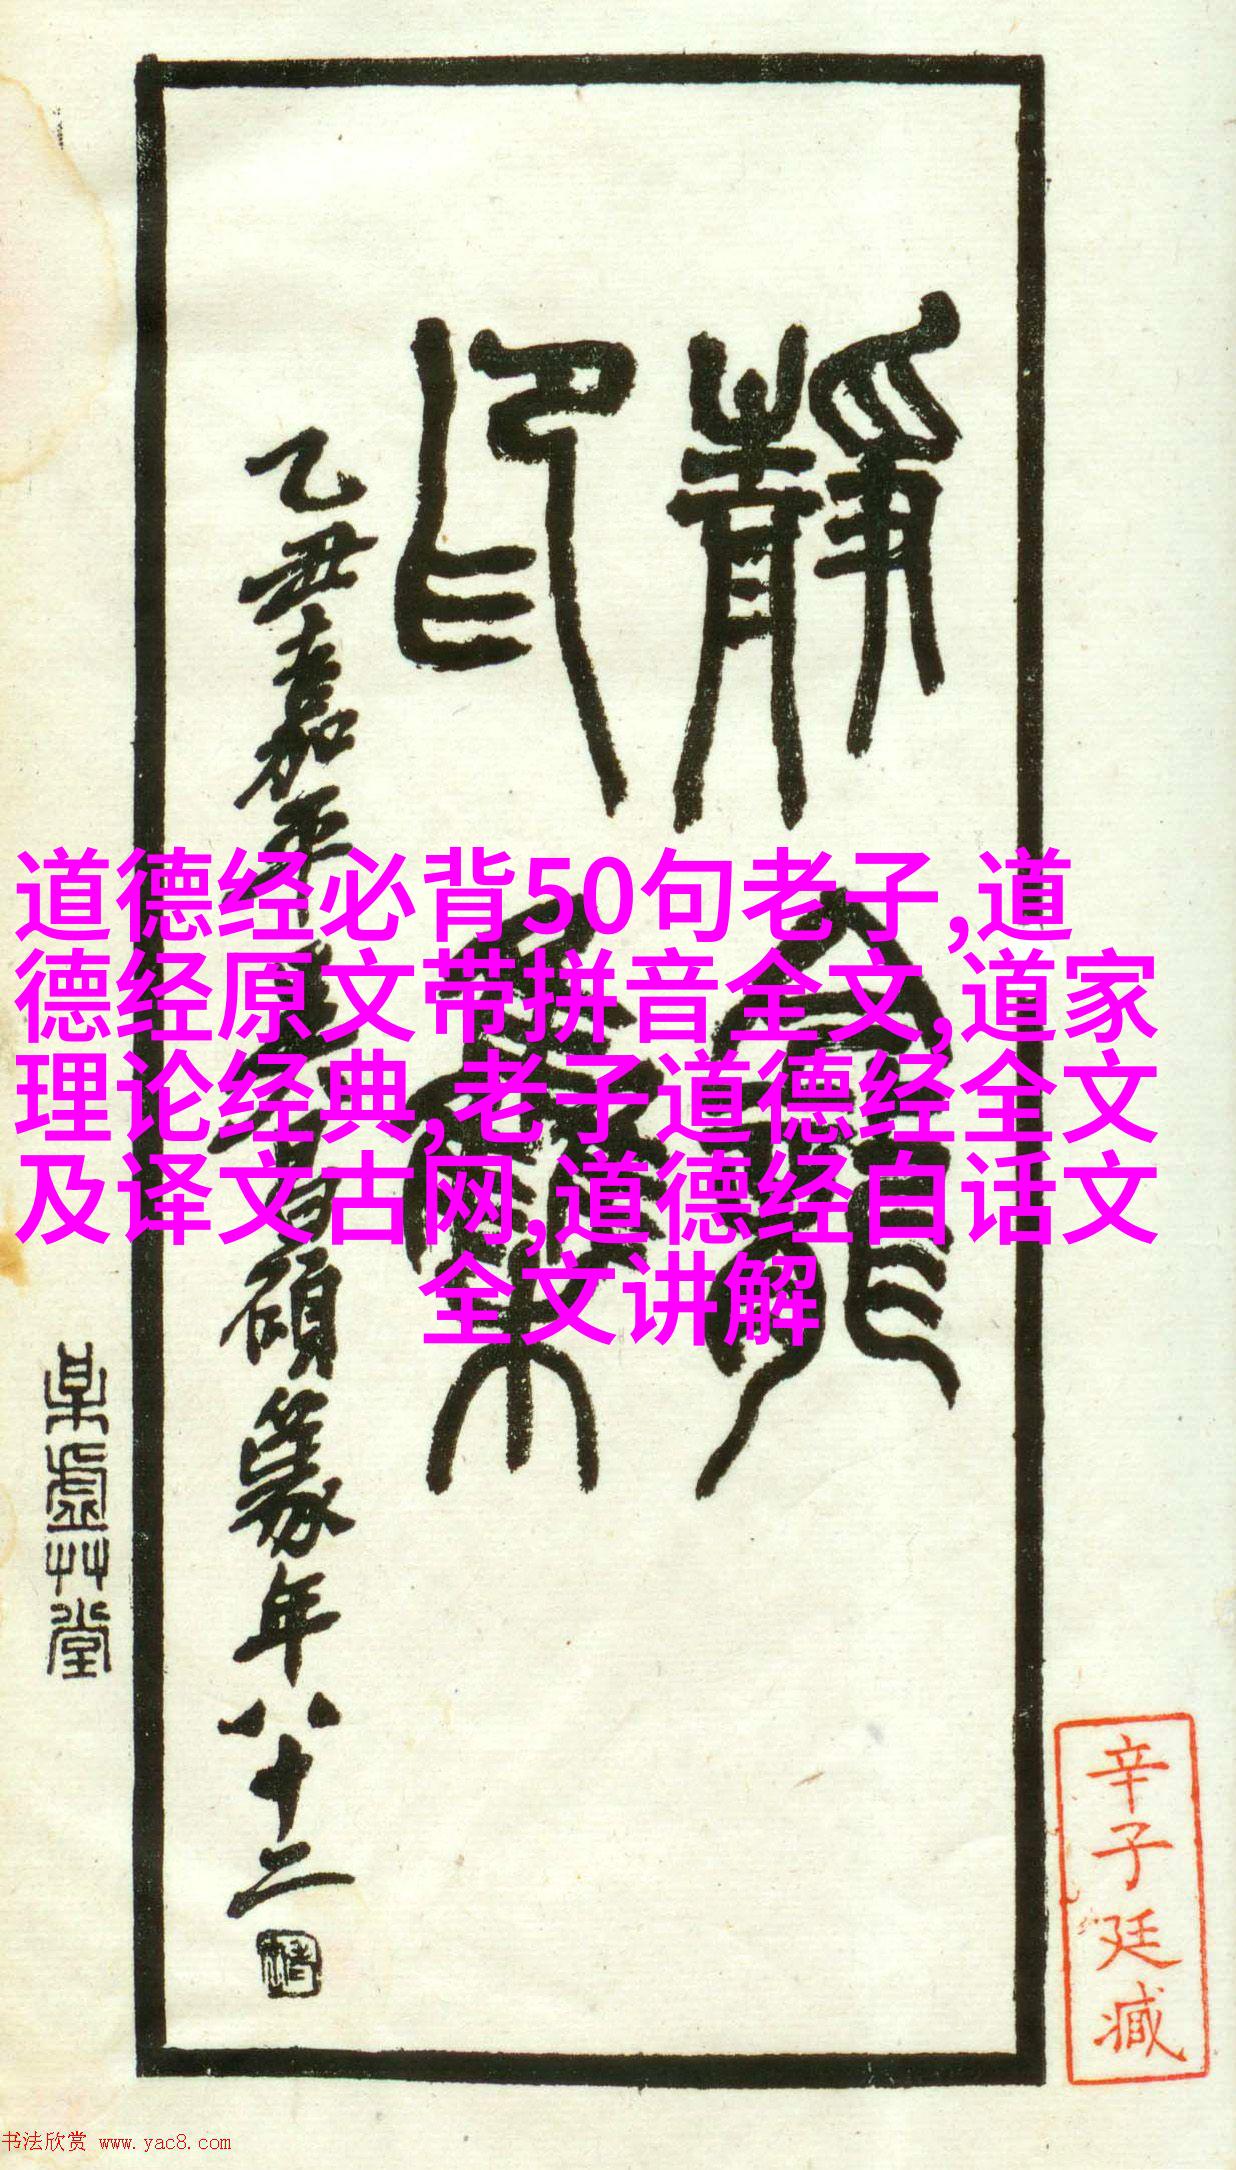 靜龕
印集
乙丑嘉平
碩篆年八十二
某虚艸堂
辛子廷臧
道德经必背50句老子,道
德经原文带拼音全文,道家
理论经典,老子道德经全文
及译文古网,道德经白话文
全文讲解
书法欣赏 www.yac8.com